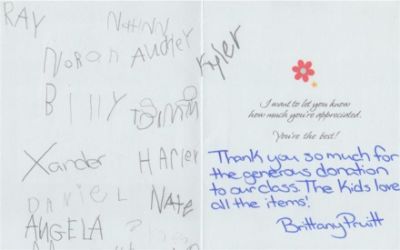 RAY
Nathan
Noron Audrey
Kyler
Billy
Xander Harler
DANIEL Nate
ANGELA
I want to let you know
how much you're appreciated.
You're the best!
Thank you so much for
the generous donation
to our class. The kids love
all the items!
Brittany Pruitt